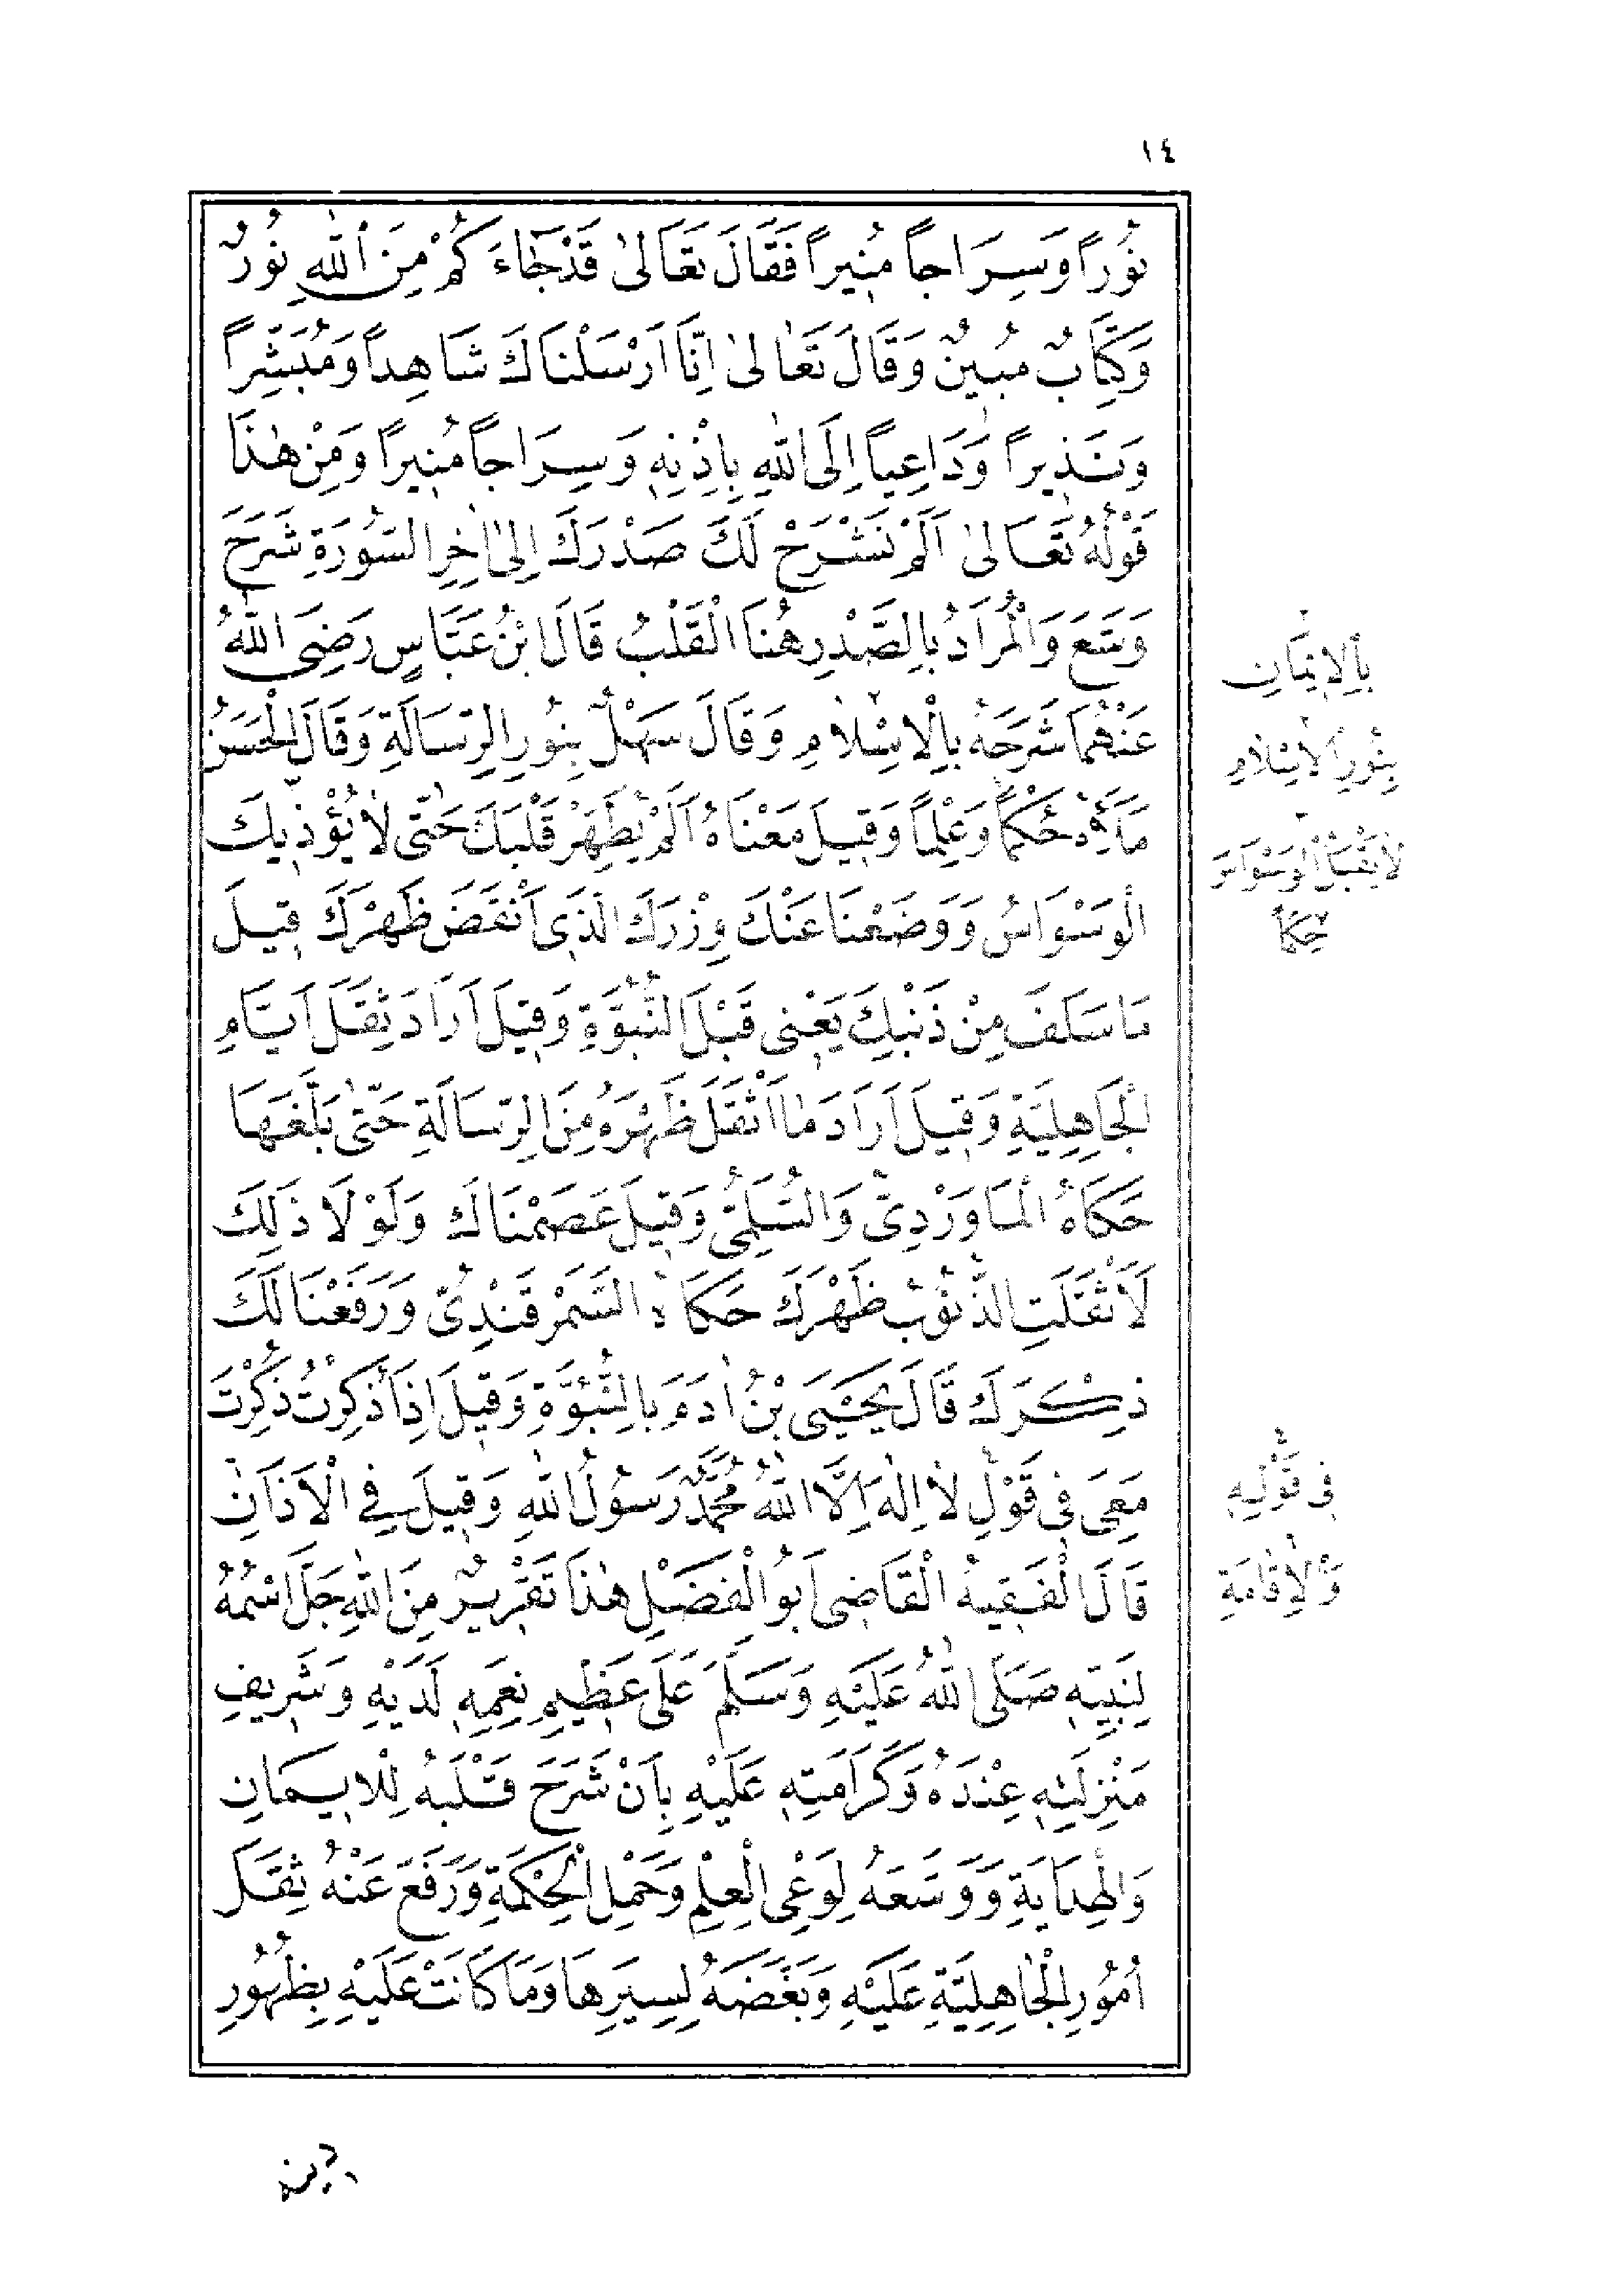 ١٤
نُورًا وَسِرَاجًا مُنِيرًا فَقَالَ تَعَالَىٰ قَدْ جَاءَكُمْ مِنَ اللّٰهِ نُورٌ
وَكِتَابٌ مُبِينٌ وَقَالَ تَعَالَىٰ اِنَّا اَرْسَلْنَاكَ شَاهِدًا وَمُبَشِّرًا
وَنَذِيرًا وَدَاعِيًا اِلَى اللّٰهِ بِاِذْنِهِ وَسِرَاجًا مُنِيرًا وَمِنْ هٰذَا
قَوْلُهُ تَعَالَىٰ اَلَمْ نَشْرَحْ لَكَ صَدْرَكَ اِلىٰ اٰخِرِ السُّورَةِ شَرَحَ
وَسَّعَ وَالْمُرَادُ بِالصَّدْرِ هُنَا الْقَلْبُ قَالَ ابْنُ عَبَّاسٍ رَضِىَ اللّٰهُ
عَنْهُمَا شَرَحَهُ بِالْاِسْلَامِ وَقَالَ سَهْلٌ بِنُورِ الرِّسَالَةِ وَقَالَ الْحَسَنُ
مَلَأَهُ حُكْمًا وَعِلْمًا وَقِيلَ مَعْنَاهُ اَلَمْ يُطَهِّرْ قَلْبَكَ حَتّٰى لَا يُؤْذِيكَ
الْوَسْوَاسُ وَوَضَعْنَا عَنْكَ وِزْرَكَ الَّذِى اَنْقَضَ ظَهْرَكَ قِيلَ
مَا سَلَفَ مِنْ ذَنْبِكَ يَعْنِى قَبْلَ النُّبُوَّةِ وَقِيلَ اَرَادَ ثِقَلَ اَيَّامِ
الْجَاهِلِيَّةِ وَقِيلَ اَرَادَ مَا اَثْقَلَ ظَهْرَهُ مِنَ الرِّسَالَةِ حَتّٰى بَلَّغَهَا
حَكَاهُ الْمَاوَرْدِىُّ وَالسُّلَمِىُّ وَقِيلَ عَصَمْنَاكَ وَلَوْلَا ذٰلِكَ
لَاَثْقَلَتِ الذُّنُوبُ ظَهْرَكَ حَكَاهُ السَّمَرْقَنْدِىُّ وَرَفَعْنَا لَكَ
ذِكْرَكَ قَالَ يَحْيَى بْنُ اٰدَمَ بِالنُّبُوَّةِ وَقِيلَ اِذَا ذُكِرْتُ ذُكِرْتَ
مَعِىَ فِى قَوْلِ لَا اِلٰهَ اِلَّا اللّٰهُ مُحَمَّدٌ رَسُولُ اللّٰهِ وَقِيلَ فِى الْاَذَانِ
قَالَ الْفَقِيهُ الْقَاضِى اَبُو الْفَضْلِ هٰذَا تَقْرِيرٌ مِنَ اللّٰهِ جَلَّ اسْمُهُ
لِنَبِيِّهِ صَلَّى اللّٰهُ عَلَيْهِ وَسَلَّمَ عَلَى عَظِيمِ نِعَمِهِ لَدَيْهِ وَشَرِيفِ
مَنْزِلَتِهِ عِنْدَهُ وَكَرَامَتِهِ عَلَيْهِ بِاَنْ شَرَحَ قَلْبَهُ لِلْاِيمَانِ
وَالْهِدَايَةِ وَوَسَّعَهُ لِوَعْىِ الْعِلْمِ وَحَمْلِ الْحِكْمَةِ وَرَفَعَ عَنْهُ ثِقَلَ
اُمُورِ الْجَاهِلِيَّةِ عَلَيْهِ وَبَغَّضَهُ لِسِيَرِهَا وَمَا كَانَتْ عَلَيْهِ بِظُهُورِ
بِالْاِيمَانِ
بِنُورِ الْاِسْلَامِ
لَا يَقْبَلُ الْوَسْوَاسَ
حِكَمًا
فِى قَوْلِهِ
وَالْاِقَامَةِ